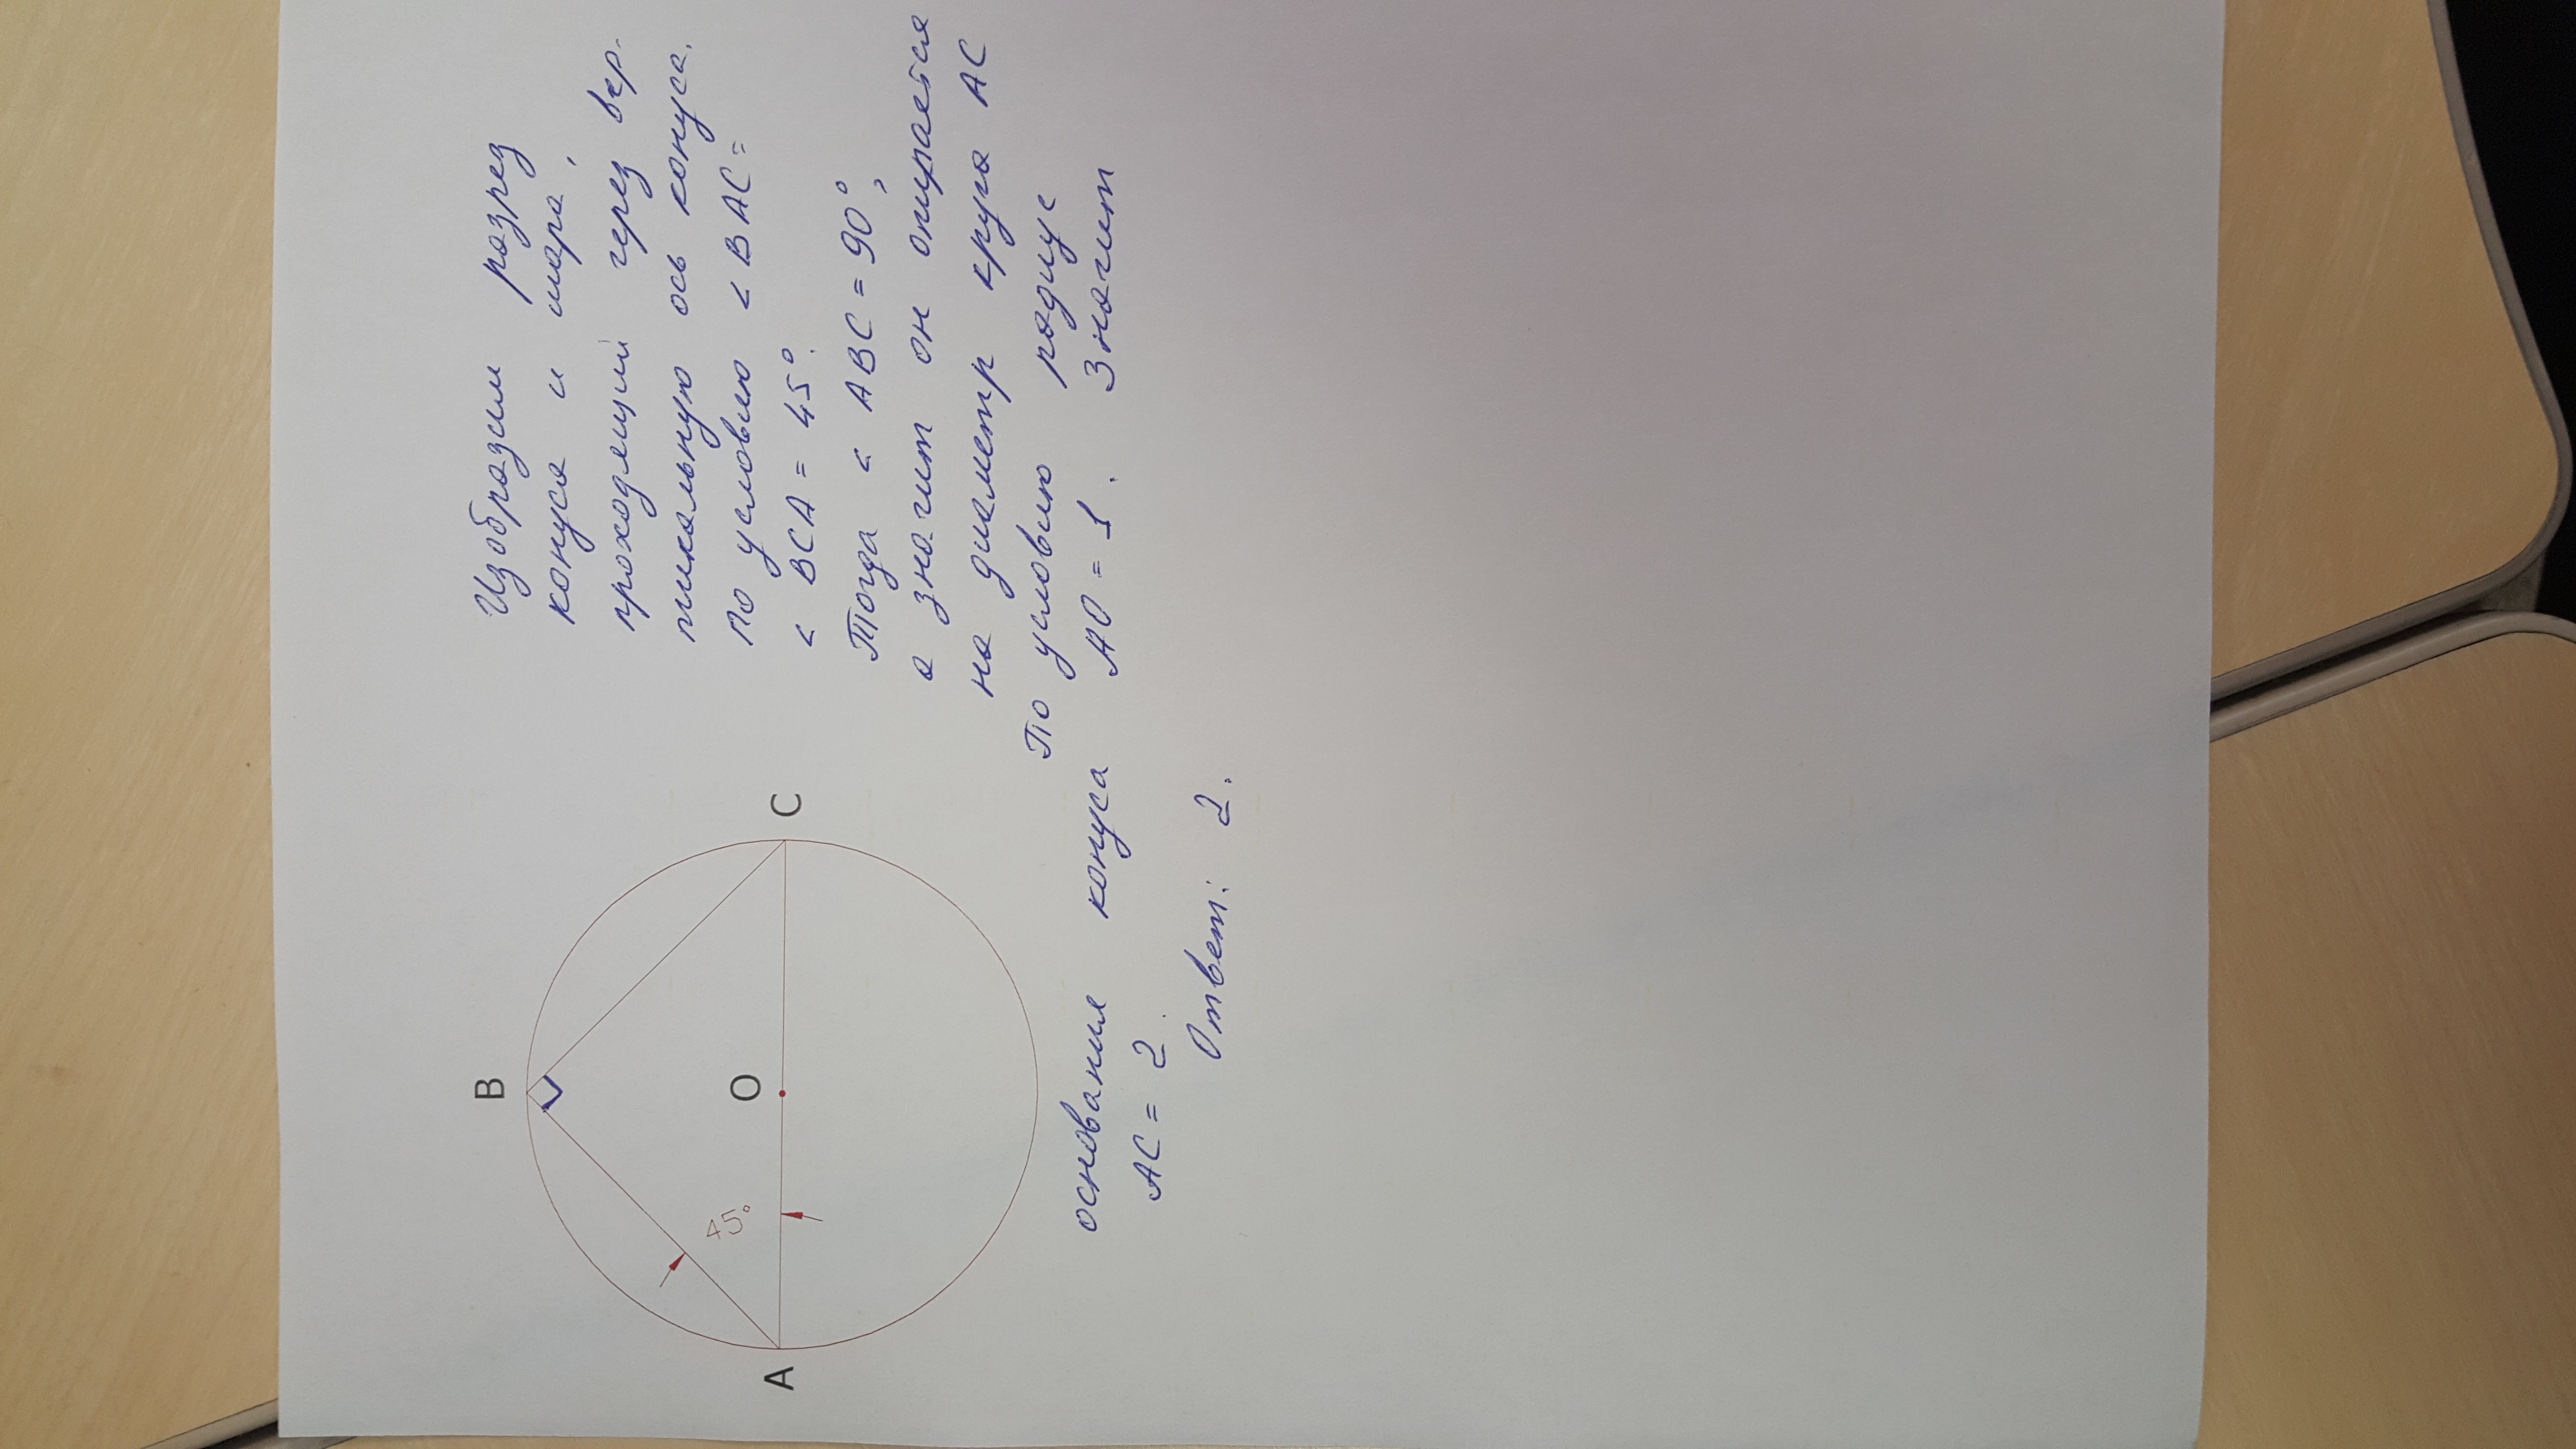 Изобразим разрез
конуса и шара,
проходящий через вер-
тикальную ось конуса.
По условию < BAC =
< BCA = 45°.
Тогда < ABC = 90°,
а значит он опирается
на диаметр круга AC
По условию радиус
основания конуса AO = 1. Значит
AC = 2.
Ответ: 2.
B
45°
O
A
C